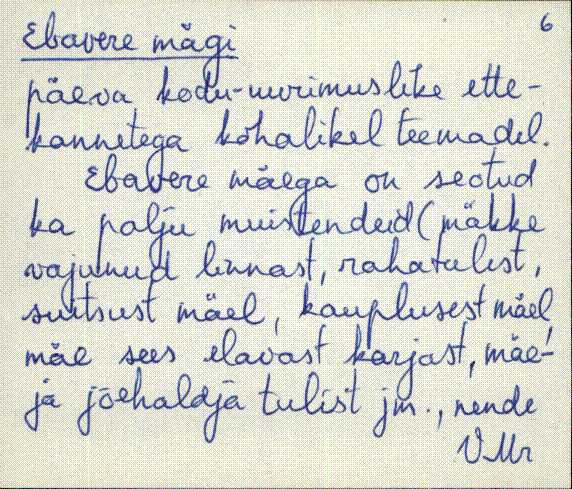 6
Ebavere mägi
päeva kodu-uurimuslike ette-
kannetega kohalikel teemadel.
Ebavere mäega on seotud
ka palju muistendeid (mäkke
vajunud linnast, rahatulest,
suitsust mäel, kauplusest mäel,
mäe sees elavast karjast, mäe-
ja jõehaldja tulist jm., nende
VMr